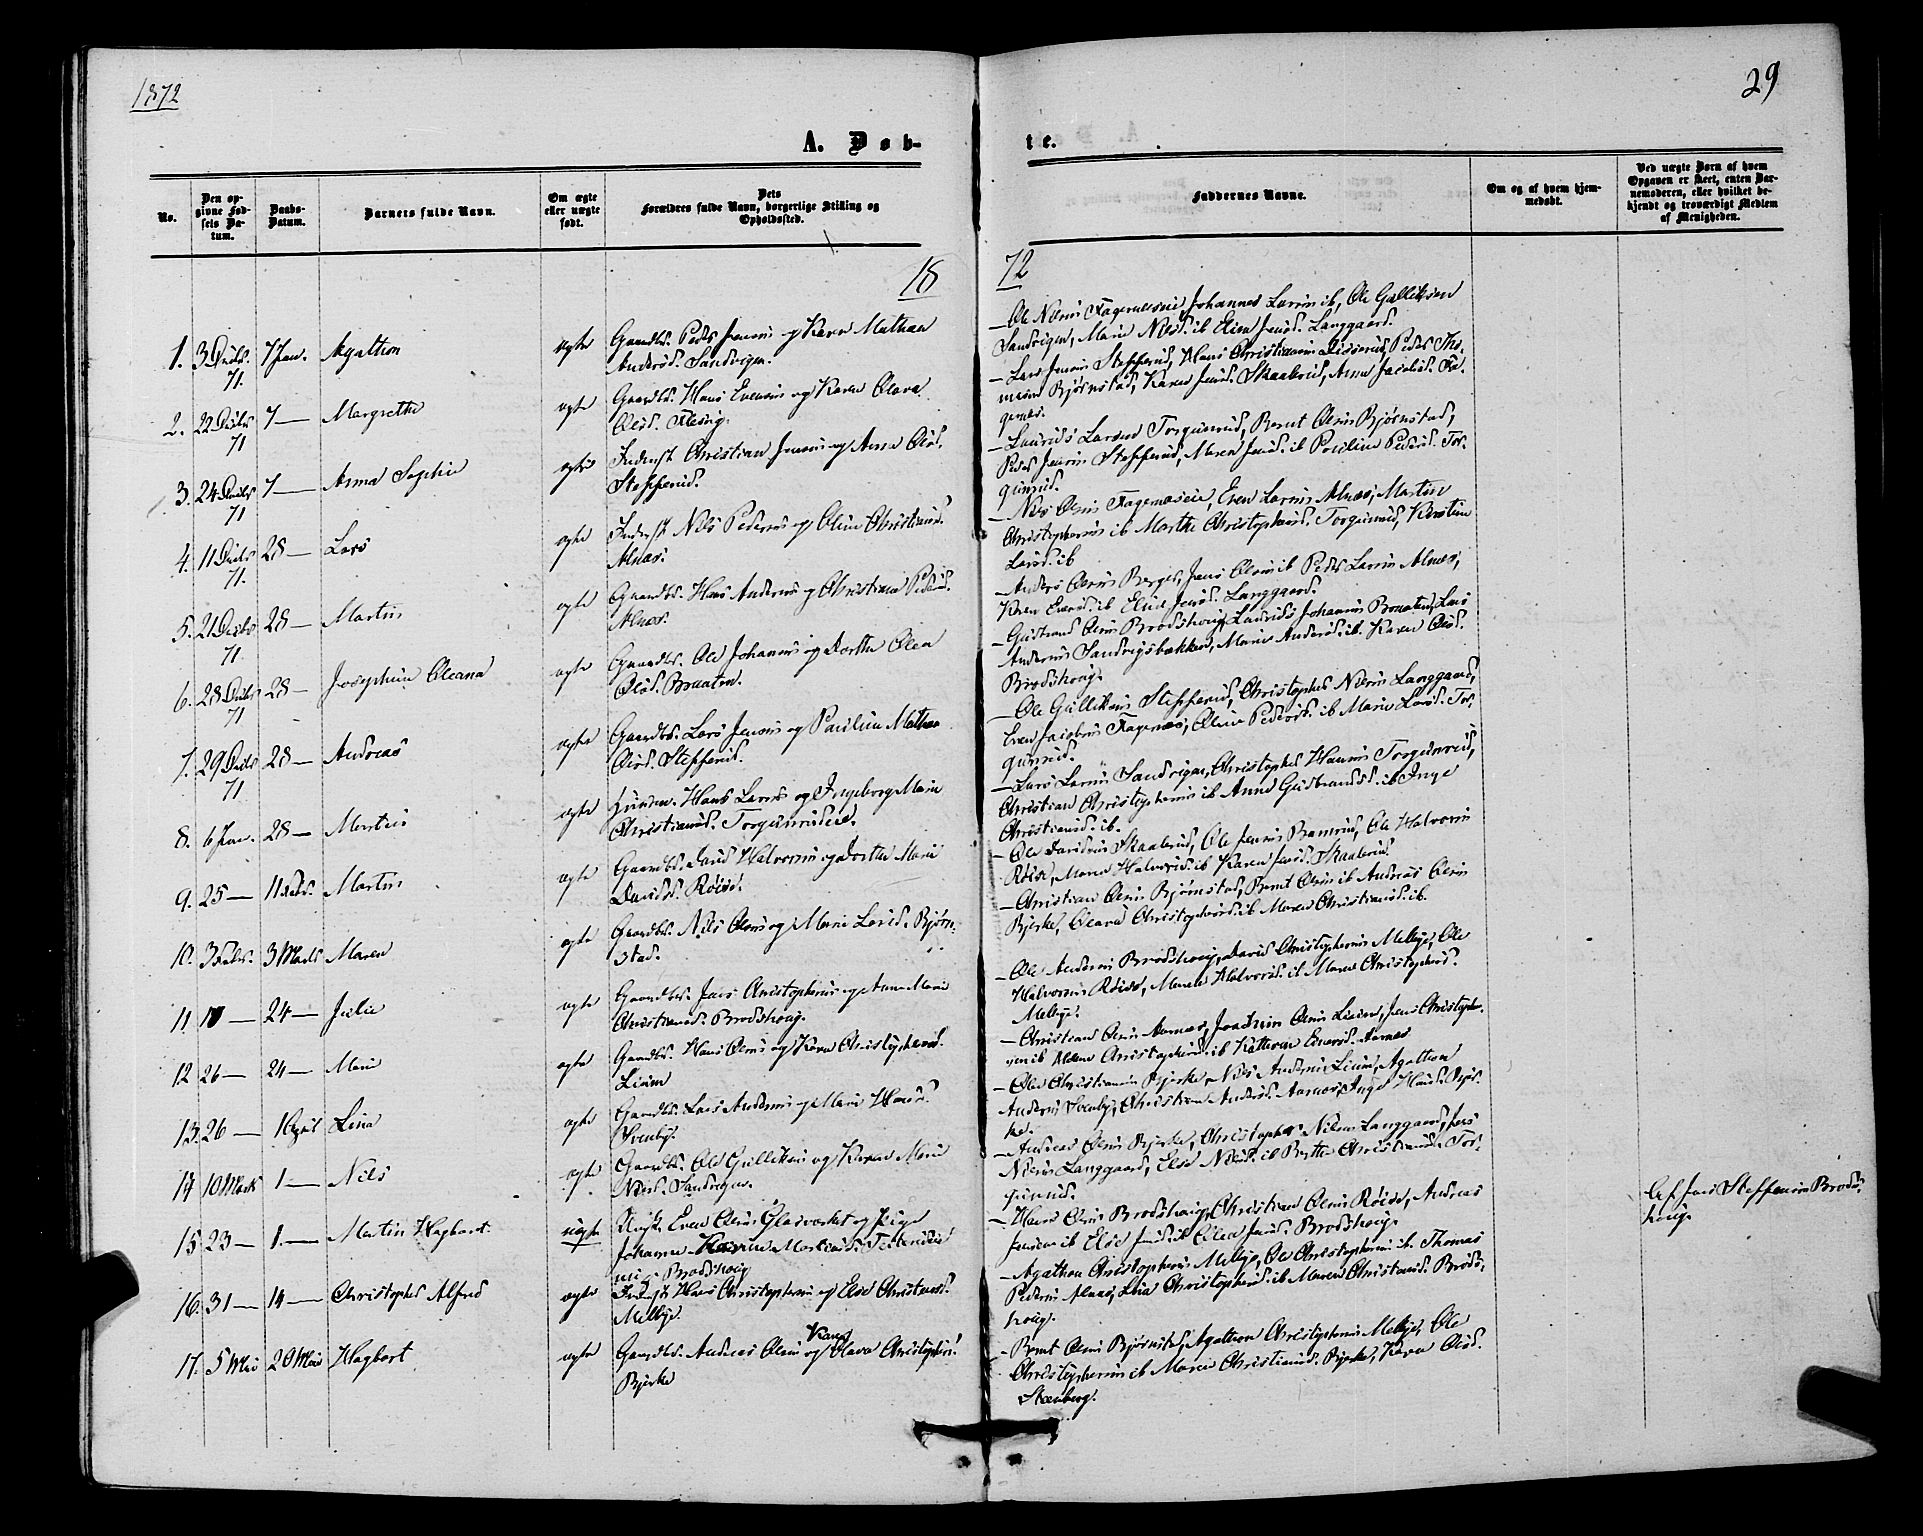 1872
29
A. Døb-
te.
No.
Den op-
givne Fød-
sels Da-
tum.
Daabs-
Datum.
Barnets fulde Navn.
Om ægte
eller uægte
født.
Dets
Forældres fulde Navn, borgerlige Stilling og
Opholdssted.
Faddernes Navne.
Om og af hvem hjem-
medøbt.
Ved uægte Børn af hvem
Opgaven er skeet, enten Bar-
nemoderen, eller hvilket be-
kjendt og troværdigt Medlem
af Menigheden.
18
72
1. 3 Decbr. 71. 7 Jan. Agathon ægte Gaardbr. Peder Jensen og Karen Mathea
Andersd. Sandvigen.
– Ole Nilsen Fagernæseie, Johannes Larsen ib, Ole Gulliksen
Sandvigen, Marie Nilsd. ib Elien Jensd. Langgaard.
2. 22 Decbr 71 7 — Margrethe ægte Gaardbr. Hans Evensen og Karen Olava
Olsd.
– Lars Jensen Stefferud, Hans Christiansen Peder Tho-
mesen Bjørnstad, Karen Jensd. Skaalerud, Anne Jacobsd. Fa-
gernæs.
3. 24 Decbr 71 7 — Anna Sophie ægte Inderst Christian Jensen og Anne Olsd.
Stefferud.
– Laurids Larsen Torgunrud, Bernt Olsen Bjørnstad,
Peder Jensen Stefferud, Maren Jensd. ib Pauline Pedersd. Tor-
gunrud.
4. 11 Decbr 71. 28 — Lars ægte Inderst Nils Pedersen og Oline Christiansd.
Alnæs.
– Nils Olsen Fagernæseie, Even Larsen Alnæs, Martin
Christophersen ib Marthe Christophersd. Torgunrud, Kirstine
Larsd. ib
5. 21 Decbr 71. 28 — Martin ægte Gaardbr. Hans Andersen og Christiane Pedersd.
Alnæs.
– Anders Olsen Berger, Jens Olsen ib Peder Larsen Alnæs,
Karen Eversd. ib Elise Jensd. Langgaard.
6. 28 Decbr 71 28 — Josephine Oleana ægte Gaardbr. Ole Johannes og Dorthe Olea
Olsd. Braaten.
– Gudbrand Olsen Brodshoug, Laurids Johannes Braaten, Lars
Andersen Sandvigsbakken, Marie Andersd. ib. Karen Olsd.
Brodshoug.
7. 29 Decbr 71 28 — Andreas ægte Gaardbr. Lars Jensen og Pauline Mathea
Olsd. Stefferud.
– Ole Gulliksen Stefferud, Christopher Nilsen Langgaard,
Even Jacobsen Fagernæs, Oline Pedersd. ib Marie Larsd. Tor-
gunrud.
8. 6 Jan. 28 — Martin ægte Hans Larsen og Ingeborg Marie
Christiansd. Torgunrudeie.
– Lars Larsen Sandvigen, Christopher Hansen Torgunrud,
Christian Christophersen ib Anne Gudbrandsd. ib Inge
Christiansd. ib.
9. 25 — 11 Febr. Martin ægte Gaardbr. David Halvorsen og Dorthe Marie
Davidsd. Røise.
– Ole Davidsen Skaalerud, Ole Jensen, Ole Halvorsen
Røise, Maren Halvorsd. ib Karen Jensd. Skaalerud.
10. 3 Febr. 3 Marts Maren ægte Gaardbr. Nils Olsen og Marie Larsd. Bjørn-
stad.
– Christian Olsen Bjørnstad, Bernt Olsen ib Andreas Olsen
Bjerke, Oleava Christophersd. ib Maren Christiansd. ib.
11 18 — 24 — Julie ægte Gaardbr. Jens Christophersen og Anne Marie
Christiansd. Brodshoug.
– Ole Andersen Brodshoug, David Christophersen Melbye, Ole
Halvorsen Røise, Maren Halvorsd. ib Maren Christophersd.
Melbye.
12 26 — 24 — Marie ægte Gaardbr. Hans Olsen og Karen Christophersd.
Linne
– Christian Olsen Aarnæs, Joachim Olsen Linne, Jens Christopher-
sen ib Christophersd. ib Kathrine Eversd. Aarnæs
13. 26 — 1 April Lina ægte Gaardbr. Lars Andersen og Marie Hansd.
Svenby.
– Ole Christiansen Bjerke, Nils Andersen Linne, Agathon
Andersen Svenby, Christian Andersd. Aarnæs, Inge Hansd. Bjer-
ke.
14 10 Marts 1 — Nils ægte Gaardbr. Ole Gulliksen og Karen Marie
Nilsd. Sandvigen.
– Andreas Olsen Bjerke, Christopher Nilsen Langgaard, Lars
Nilsen Langgaard, Else Nilsd. ib Berthe Christiansd. Tor-
gunrud.
15 23 — 1 — Martin Hagbart. uægte Ungk. Even Olsen Glasværket og Pige
Johanne Karine Mortensd.
Brodshoug
– Hans Olsen Brodshoug, Christian Olsen Røise, Andreas
Jensen ib Else Jensd. ib Olea Jensd. Brodshoug.
Af Jens Steffensen Brods-
houg.
16. 31 — 14 — Christopher Alfred ægte Inderst Hans Christophersen og Else Christiansd.
Melbye.
– Agathon Christophersen Melbye, Ole Christophersen ib. Thomas
Pedersen Alnæs, Lina Christophersd. ib Maren Christiansd. Brods-
houg.
17. 5 Mai 20 Mai Hagbart ægte Gaardbr. Andreas Olsen og Karen Olava Christophersd.
Bjerke
– Bernt Olsen Bjørnstad, Agathon Christophersen Melbye, Ole
Christophersen ib Maren Christiansd. Bjerke, Karen Olsd.
Steenberg.